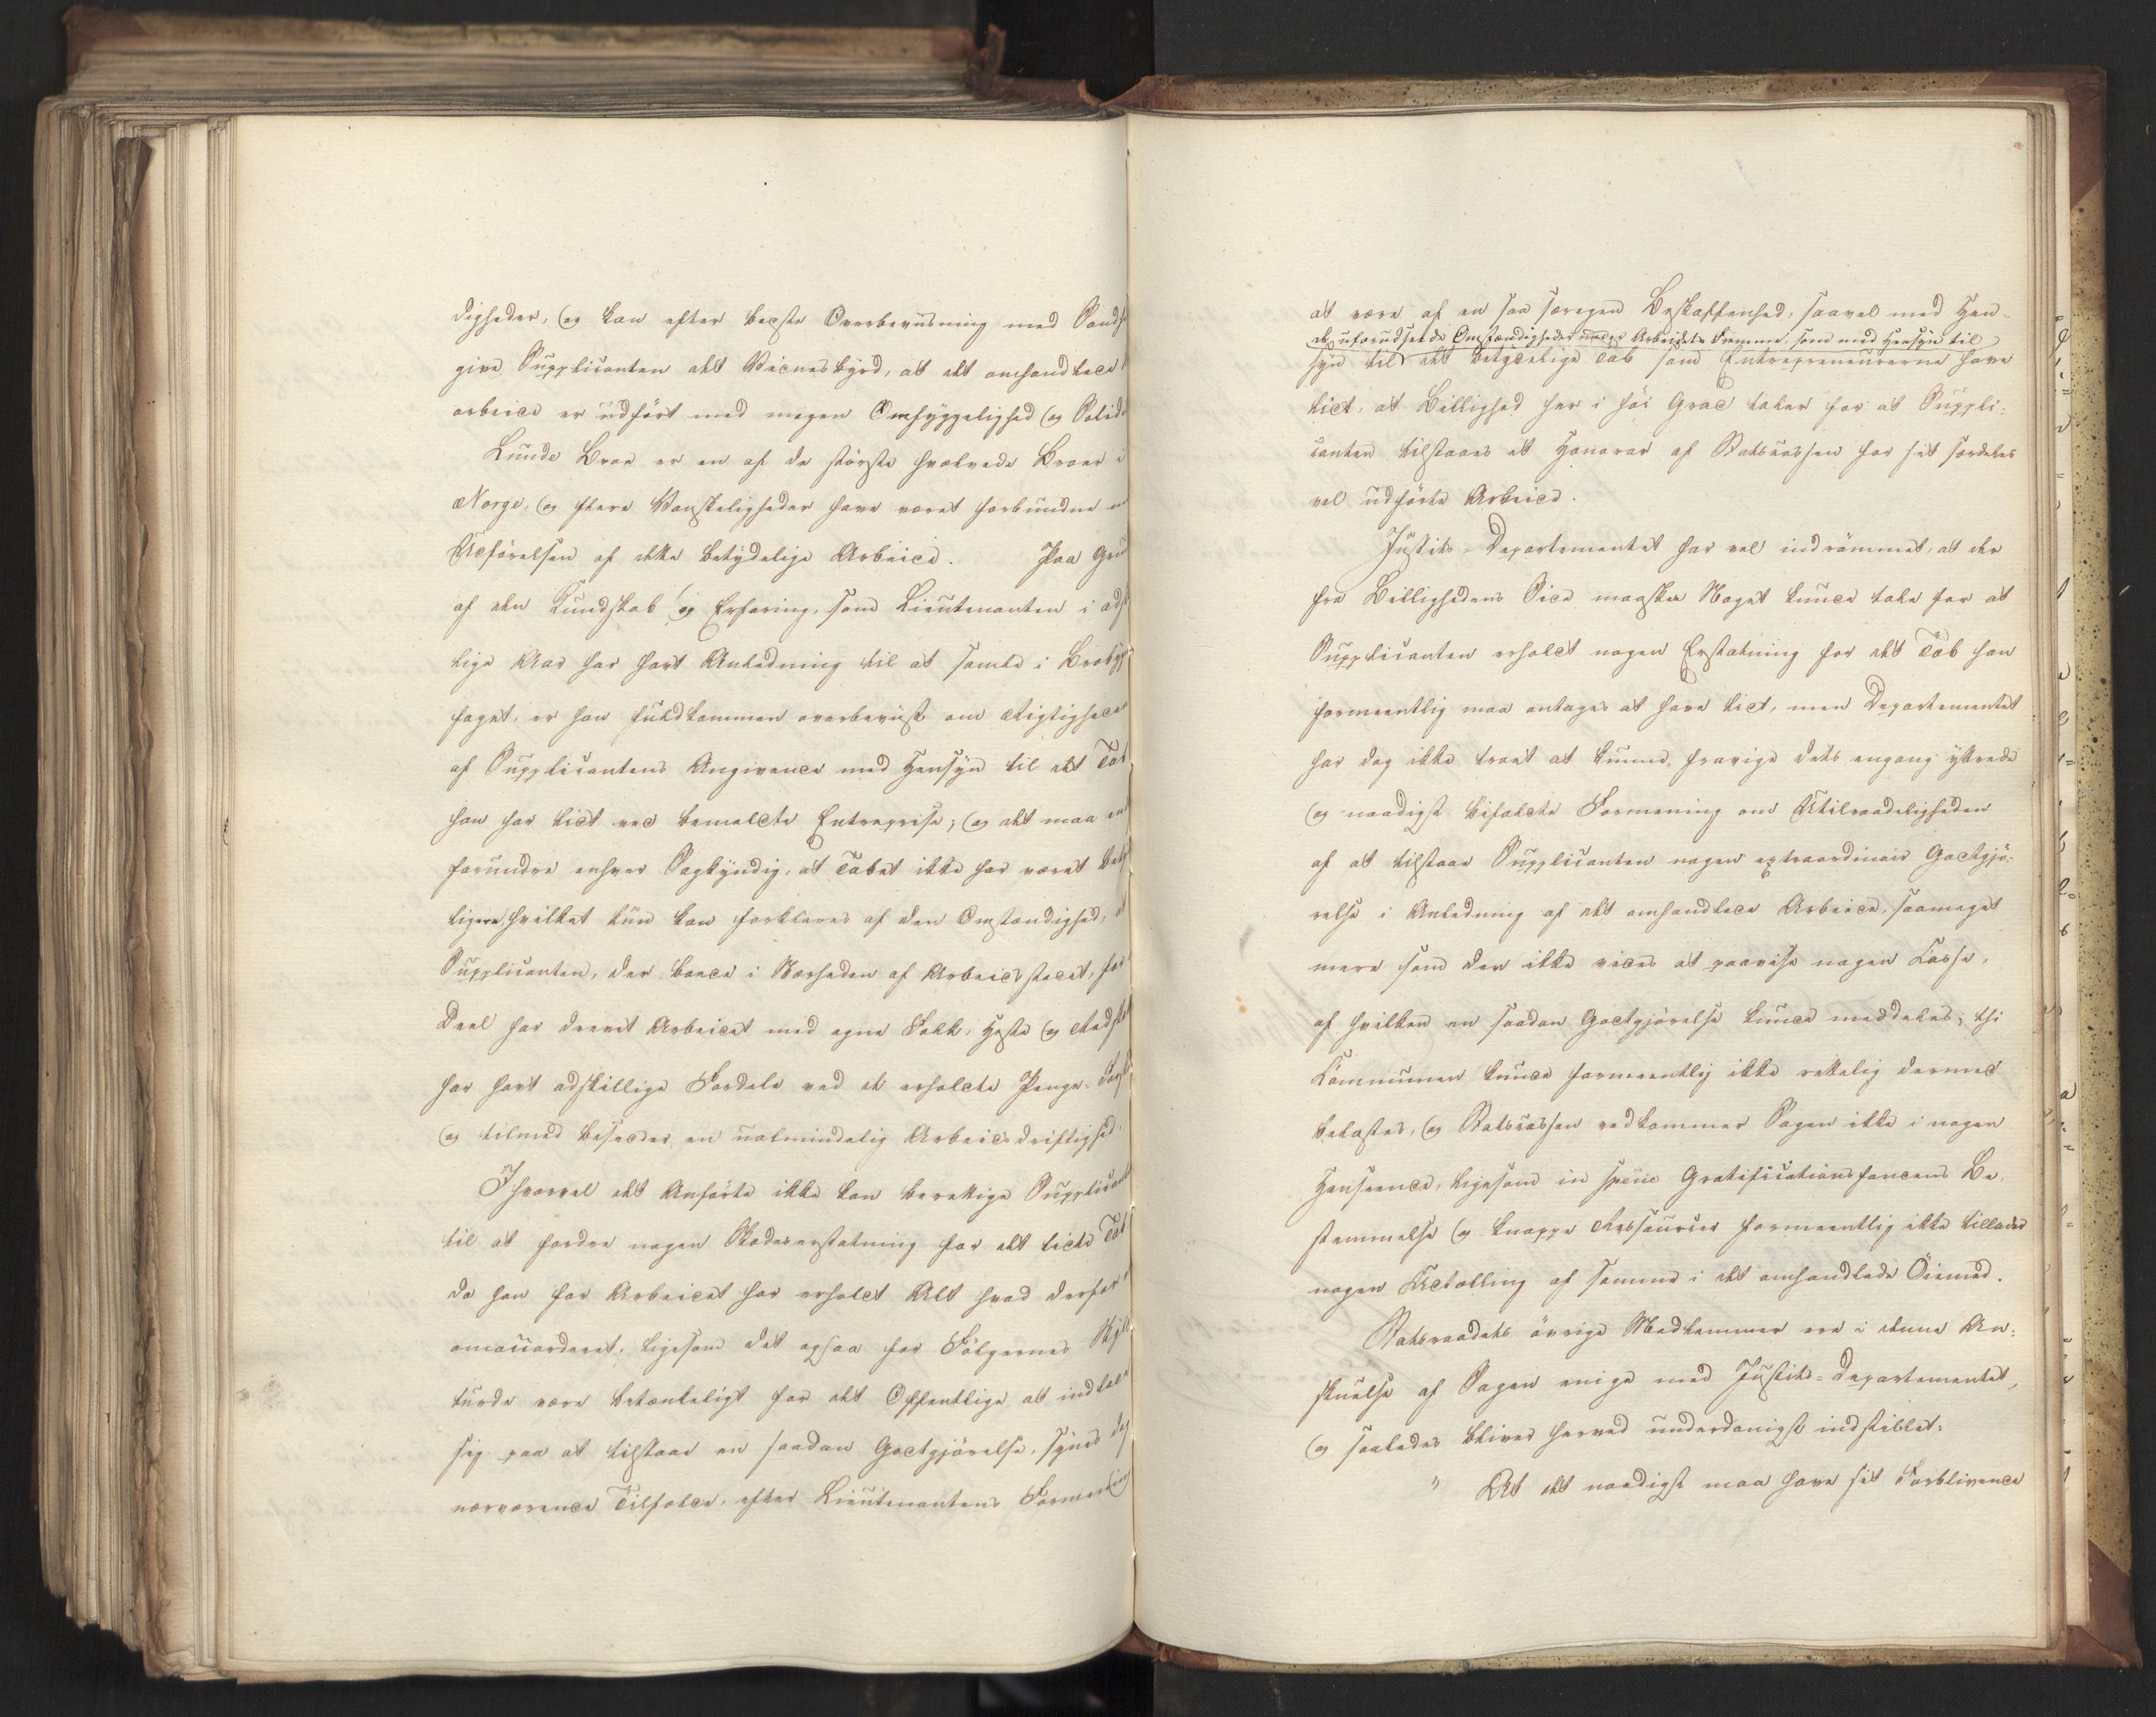 digheder, og kan efter bedste Overbeviisning med Sandh
give Supplicanten det Vidnesbyrd, at det omhandlede
arbeide er udført med megen Omhyggelighed og Solid
Lunde Broe er en af de største hvælvede Broer i
Norge, og flere Vanskeligheder have været forbundne
Udførelsen af dette betydelige Arbeide. Paa Grun
af den Kundskab og Erfaring, som Lieutenanten i ads
lige Aar har havt Anledning til at samle i Brobyg
faget, er han fuldkommen overbeviist om Rigtigheden
af Supplicantens Angivende med Hensyn til det Tab
han har lidt ved bemeldte Entreprise; og det maa
forundre enhver Sagkyndig, at Tabet ikke har været bety
ligere, hvilket kun kan forklares af den Omstændighed, at
Supplicanten, der boede i Nærheden af Arbeidsstedet, for
Deel har drevet Arbeidet med egne Folk, Heste og Redsk
har havt adskillige Fordele ved de erholdte Penge-
og tilmed besidder en ualmindelig Arbeidsdriftighed.
Ihvorvel det Anførte ikke kan berettige Supplicant
til at fordre nogen Skadeserstatning for det lidte Tab
da han for Arbeidet har erholdt Alt hvad derfor
omaccorderet, ligesom det ogsaa for Følgernes Skyld
turde være betænkeligt for det Offentlige at indlade
sig paa at tilstaae en saadan Godtgjørelse, synes dog
nærværende Tilfælde, efter Lieutenantens Formening
at være af en saa særegen Beskaffenhed, saavel med Hen-
de uforudseede Omstændigheder under Arbeidets Fremme, som med Hensyn til
syn til det betydelige Tab som Entrepreneurerne have
lidt, at Billighed her i høi Grad taler for at Suppli-
canten tilstaaes et Honorar af Statscassen for sit særdeles
vel udførte Arbeide.
Justits-Departementet har vel indrømmet, at der
fra Billighedens Side maaskee Noget kunde tale for at
Supplicanten erholdt nogen Erstatning for det Tab han
formeentlig maa antages at have lidt, men Departementet
har dog ikke troet at kunne fravige dets engang yttrede
og naadigst bifaldte Formening om Utilraadeligheden
af at tilstaae Supplicanten nogen extraordinair Godtgjø-
relse i Anledning af det omhandlede Arbeide, saameget
mere som der ikke vides at paavise nogen Casse,
af hvilken en saadan Godtgjørelse kunde meddeles; thi
Communen kunde formeentlig ikke rettelig dermed
belastes, og Statscassen vedkommer Sagen ikke i nogen
Henseende, ligesom in specie Gratificationsfondens Be-
stemmelse og knappe Ressourcer formeentlig ikke tillader
nogen Udtælling af samme i det omhandlede Øiemed.
Statsraadets øvrige Medlemmer ere i denne An-
skuelse af Sagen enige med Justits-Departementet,
og saaledes bliver herved underdanigst indstillet:
" At det naadigst maa have sit Forblivende